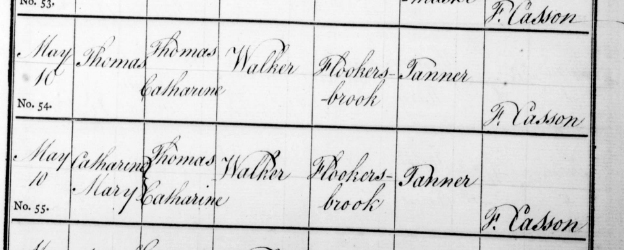 No. 53.
F. Casson
May Thomas Thomas Walker Flookers- Tanner
10 Catharine -brook
No. 54.
F. Casson
May Catharine Thomas Walker Flookers- Tanner
10 Mary Catharine brook
No. 55.
F. Casson